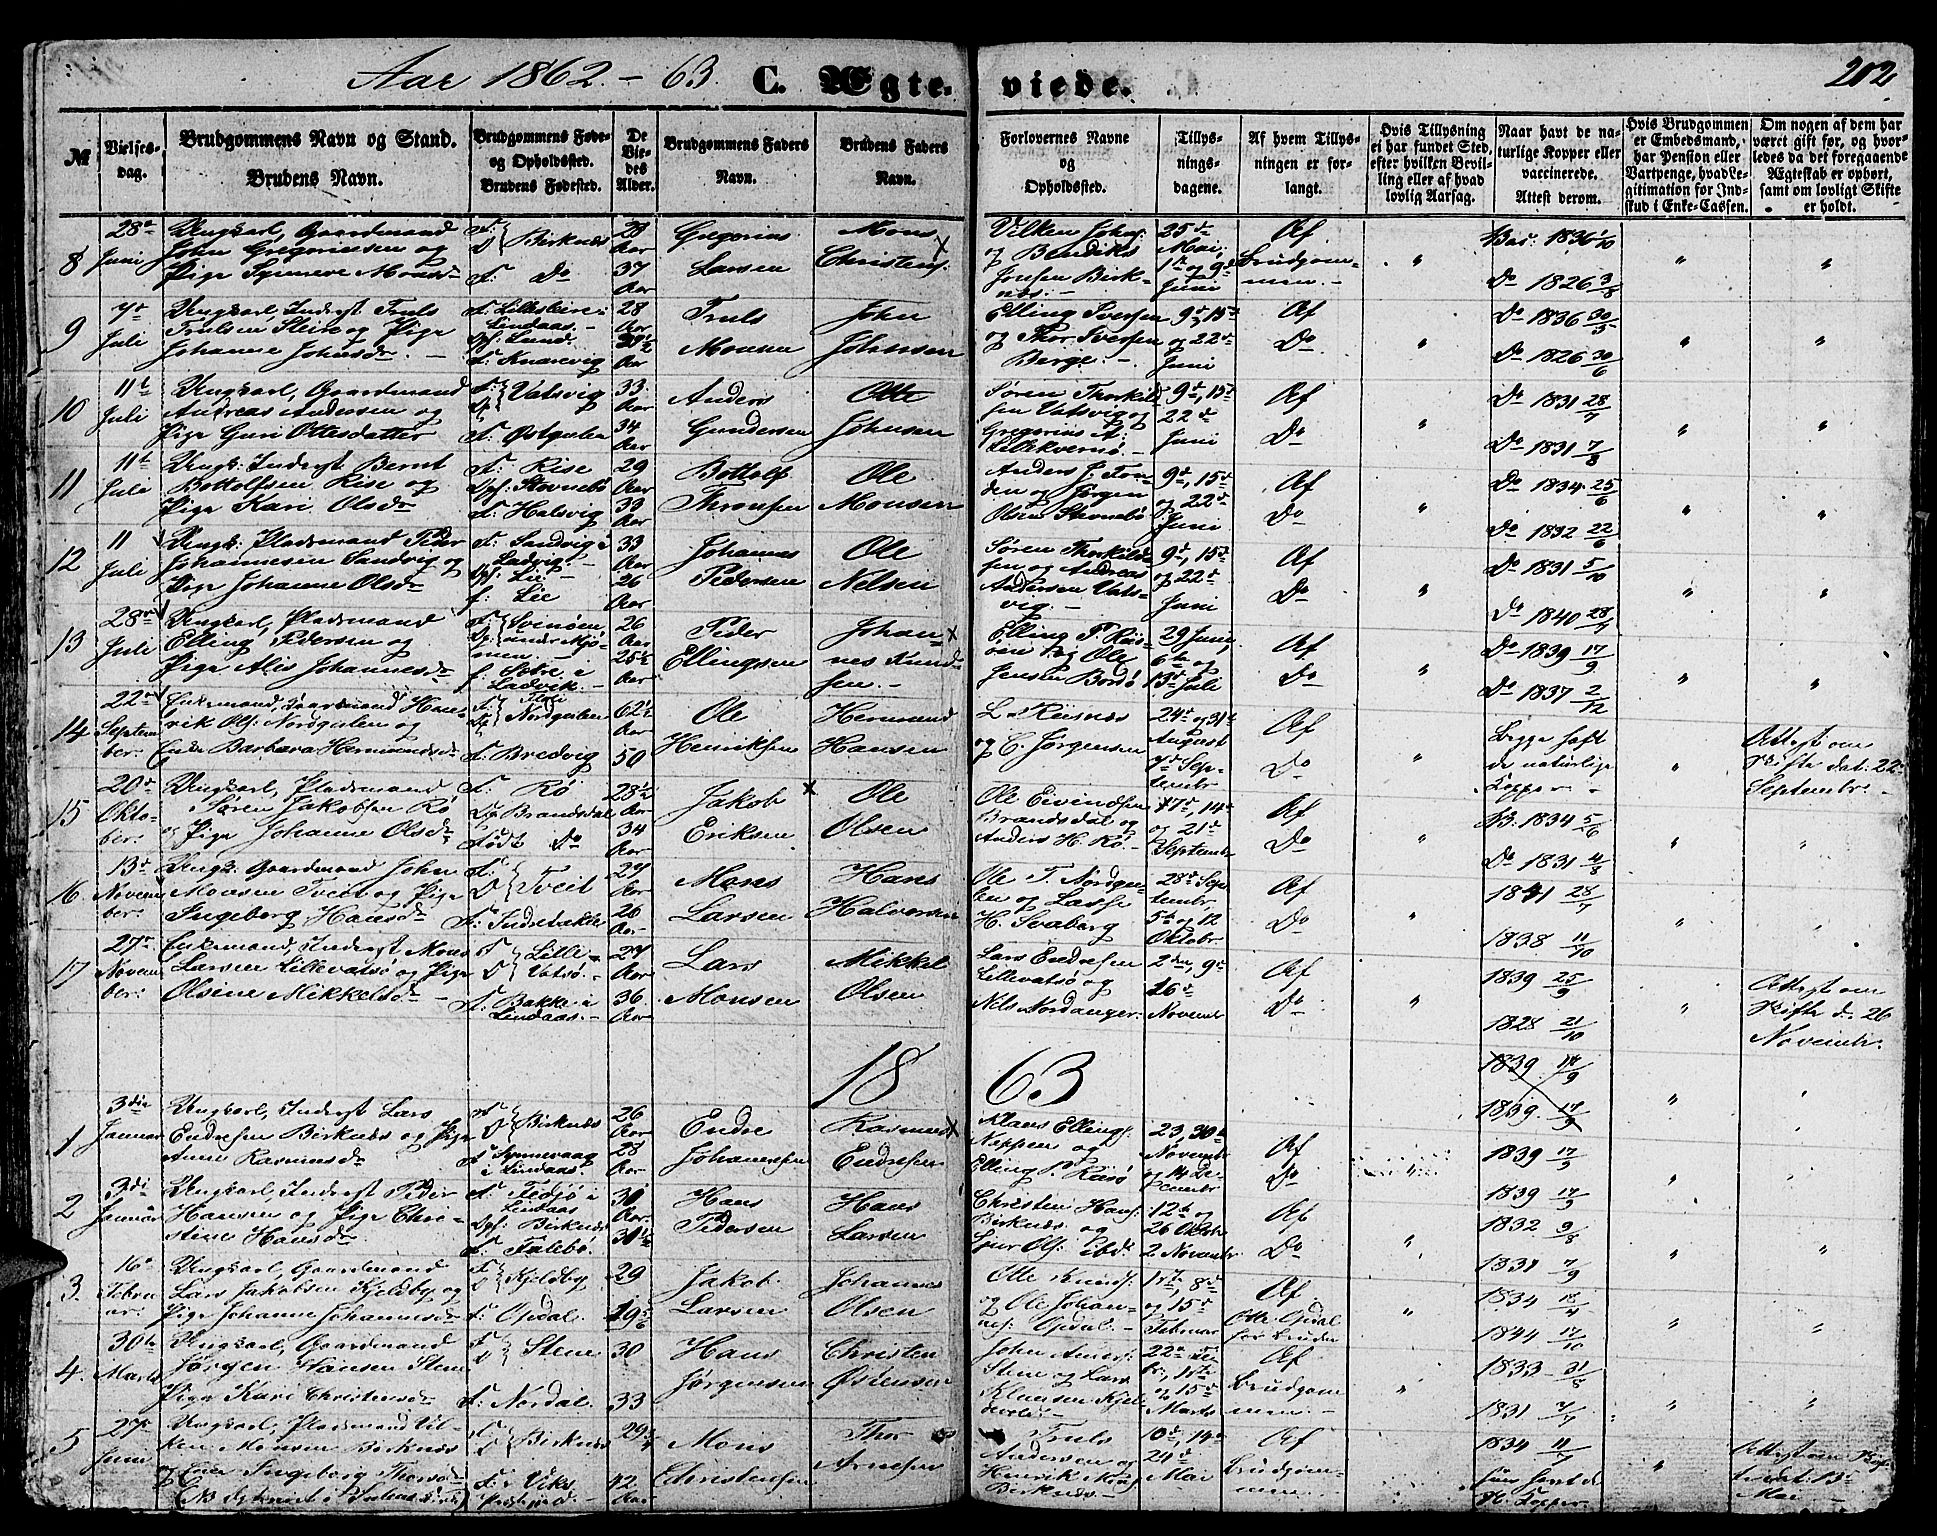 Aar 1862 - 63. C. Ægteviede. 202
№
Vielses-dag.
Brudgommens Navn og Stand.
Brudens Navn.
Brudgommens Føde- og Opholdssted.
Brudens Fødested.
De Viedes Alder.
Brudgommens Faders Navn.
Brudens Faders Navn.
Forlovernes Navne og Opholdssted.
Tillysningsdagene.
Af hvem Tillysningen er forlangt.
Hvis Tillysning ei har fundet Sted, efter hvilken Bevilling eller af hvad lovlig Aarsag.
Naar havt de naturlige Kopper eller vaccinerede. Attest derom.
Hvis Brudgommen er Embedsmand, har Pension eller Vartpenge, hvad Legitimation for Indskud i Enke-Cassen.
Om nogen af dem har været gift før, og hvorledes da det foregaaende Ægteskab er ophørt, samt om lovligt Skifte er holdt.
8 28de Juni
Ungkarl, Gaardmand
John Gregoriussen og
Pige Synneve Monsdr
F: D: Birknes
F. Do
29 Aar
37 Aar
Gregorius Larsen
Mons Christens:
Vilken Johns:
og Bendiks
Jensen Birknes.
25de Mai, 1ste og 9de Juni
Af Brudgommen.
Bac: 1836
Do 1826 3/8
9 7de Juli
Ungkarl, Inderst Truls
Trulsen Steire og Pige
Johanne Johnsdr.
F. Lillesteire i Lindaas.
Opf. Lund.
F. Knarrvig
28 Aar
Truls Monsen
John Johnsen
Elling Iversen
og Thor Iversen
Berge.
9de, 15de og 22de Juni
Af Do
Do 1836 30/5
Do 1826 30/6
10 11te Juli
Ungkarl, Gaardmand
Andreas Andersen og
Pige Guri Ottesdatter
Vatsvig
F. Østgulen
33 Aar
34 Aar
Anders Gundersen
Otte Johnsen
Søren Thorkildsen Vatsvig og
Gregorius A.
Lillekvernø.
9de, 15de 22de Juni
Af Do
Do 1831 28/7
Do 1831 7/8
11 11te Juli
Ungk: Inderst Bernt
Bottolfsen Rise og
Pige Kari Olsdr
F. Rise
Opf. Stovnebø
F. Halsvig
29 Aar
33 Aar
Bottolf Thronsen
Ole Monsen
Anders J. Torden og Jørgen
Olsen Stovnebø
9de, 15de og 22de Juni
Af Do
Do 1834 25/6
Do 1832 22/6
12 11 Juli
Ungk: Pladsmand Peder
Johannesen Sandvig og
Pige Johanne Olsdr
F. Sandvig i Ladvig.
Opf. Lie
f. Lie
33 Aar
26 Aar
Johannes Pedersen
Ole Nelsen
Søren Thorkildsen og Andreas
Andersen Vatsvig.
9de, 15de og 22de Juni
Af Do
Do 1831 5/10
Do 1840 28/7
13 28de Juli
Ungkarl, Pladsmand
Elling Pedersen og
Pige Alis Johannesdr
F. Svenøen
f. Sotre i Ladvik.
26 Aar
25½ Aar
Peder Ellingsen
Johannes Knudsen.
Elling P. Riisøen og Ole
Jensen Bordø
29 Juni, 6te og 13de Juli
Af Do
Do 1839 17/9
Do 1837 2/12
14 22de September
Enkemand, Gaardmand Henrik Ols: Nordgulen og
Enke Barbara Hermundsdr
Nordgulen
F. Bredvig
62½ Aar
50
Ole Henriksen
Hermund Hansen
L. Riisnes
og C. Jørgensen
24de og 31te August
7de September
Af Do
Begge haft
de naturlige
Kopper
Attest om
Skifte dat: 22de
Septembr
15 20de Oktober
Ungkarl, Pladsmand
Søren Jakobsen Rø
og Pige Johanne Olsdr
F. Rø
Opf. Brandsdal
Født Do
28½ Aar
34 Aar
Jakob Eriksen
Ole Olsen
Ole Eivindsen
Brandsdal og
Anders H. Rø.
7de, 14de og 21de Septembr
Af Do
B: 1834 5/6
Do 1831 4/8
16 13de November
Ungk. Gaardmand John
Monsen Tveit og Pige
Ingeborg Hansdr
F. D. Tveit
F. Indrebakke
27 Aar
26 Aar
Mons Larsen
Hans Halvorsen
Ole T. Nordgulen og Lasse
H. Svaberg
28de Septembr, 5te og 12 Oktobr
Af Do
1841 28/7
1838 11/10
17 27de November
Enkemand, Inderst Mons
Larsen Lillevatsø og Pige
Olsine Mikkelsdr
F. D. Lille Vatsø
F. Bakke i Lindaas.
27 Aar
36 Aar
Lars Monsen
Mikkel Olsen
Lars Endresen
Lillevatsø og
Nels Nordanger.
2den, 9de 16de Novembr
Af Do
1839 25/9
1828 21/10
Attest om
Skifte d. 26
Novembr.
1863
1839 17/9
1839 17/9
1 3die Januar
Ungkarl, Inderst Lars
Endresen Birknes og Pige
Anne Rasmusdr
F. D. Birknes
F. Synnevaag i Lindaas.
26 Aar
28 Aar
Endre Johannesen
Rasmus Endresen
Klaus Ellings:
Nappen og
Elling P. Riisø
23, 30te Novembr og 14 Decembr
Af Do
1839 17/9
1839 17/9
2 3di Januar
Ungkarl, Inderst Peder
Hansen og Pige Christine Hansdr
F. Fedjø i Lindaas
Opf: Birknes
F. Folebø.
30 Aar
30½
Hans Pedersen
Hans Larsen
Christen Hans:
Birknes og
Sjur Ols: ibd.
12te og 26 Oktobr 2 Novembr
Af Do
1832 9/8
7/9
3. 16de Februar
Ungkarl, Gaardmand
Lars Jakobsen Kjeldby og
Pige Johanne Johannesdr
F. D. Kjeldby
F. Opdal.
29
19 5/6
Jakob Larsen
Johannes Olsen
Otte Knuds:
og Ole Johannes: Opdal.
1ste 8de og 15de Februar
Af
Otte Opdal
for Bruden
1834 18/4
1844 17/10
4. 30te Marts
Ungkarl, Gaardmand
Jørgen Hansen Stene
Pige Kari Christensdr
F. D. Stene
F. Nordal.
30
33
Hans Jørgensen
Christen Østensen
John Anders:
Stene og Lars
Klausen
22de Febr., 1ste og 15de Marts
Af Brudgommen.
1833 31/8
1831 7/7
5 27de Juni
Ungkarl, Pladsmand Vilken Monsen Birknes
Enke Ingeborg Thorsdr
F. D. Birknes
F. Viks Præstegjeld.
42 Aar
Mons Christensen
Thor Arnesen
Truls
Andersen og
Henrik
Birknes.
10de, 14de 24de Mai
Af Brudgommen.
1834 11/7
hun havt de
N. Kopper
Attest om
dat: 13de
Mai